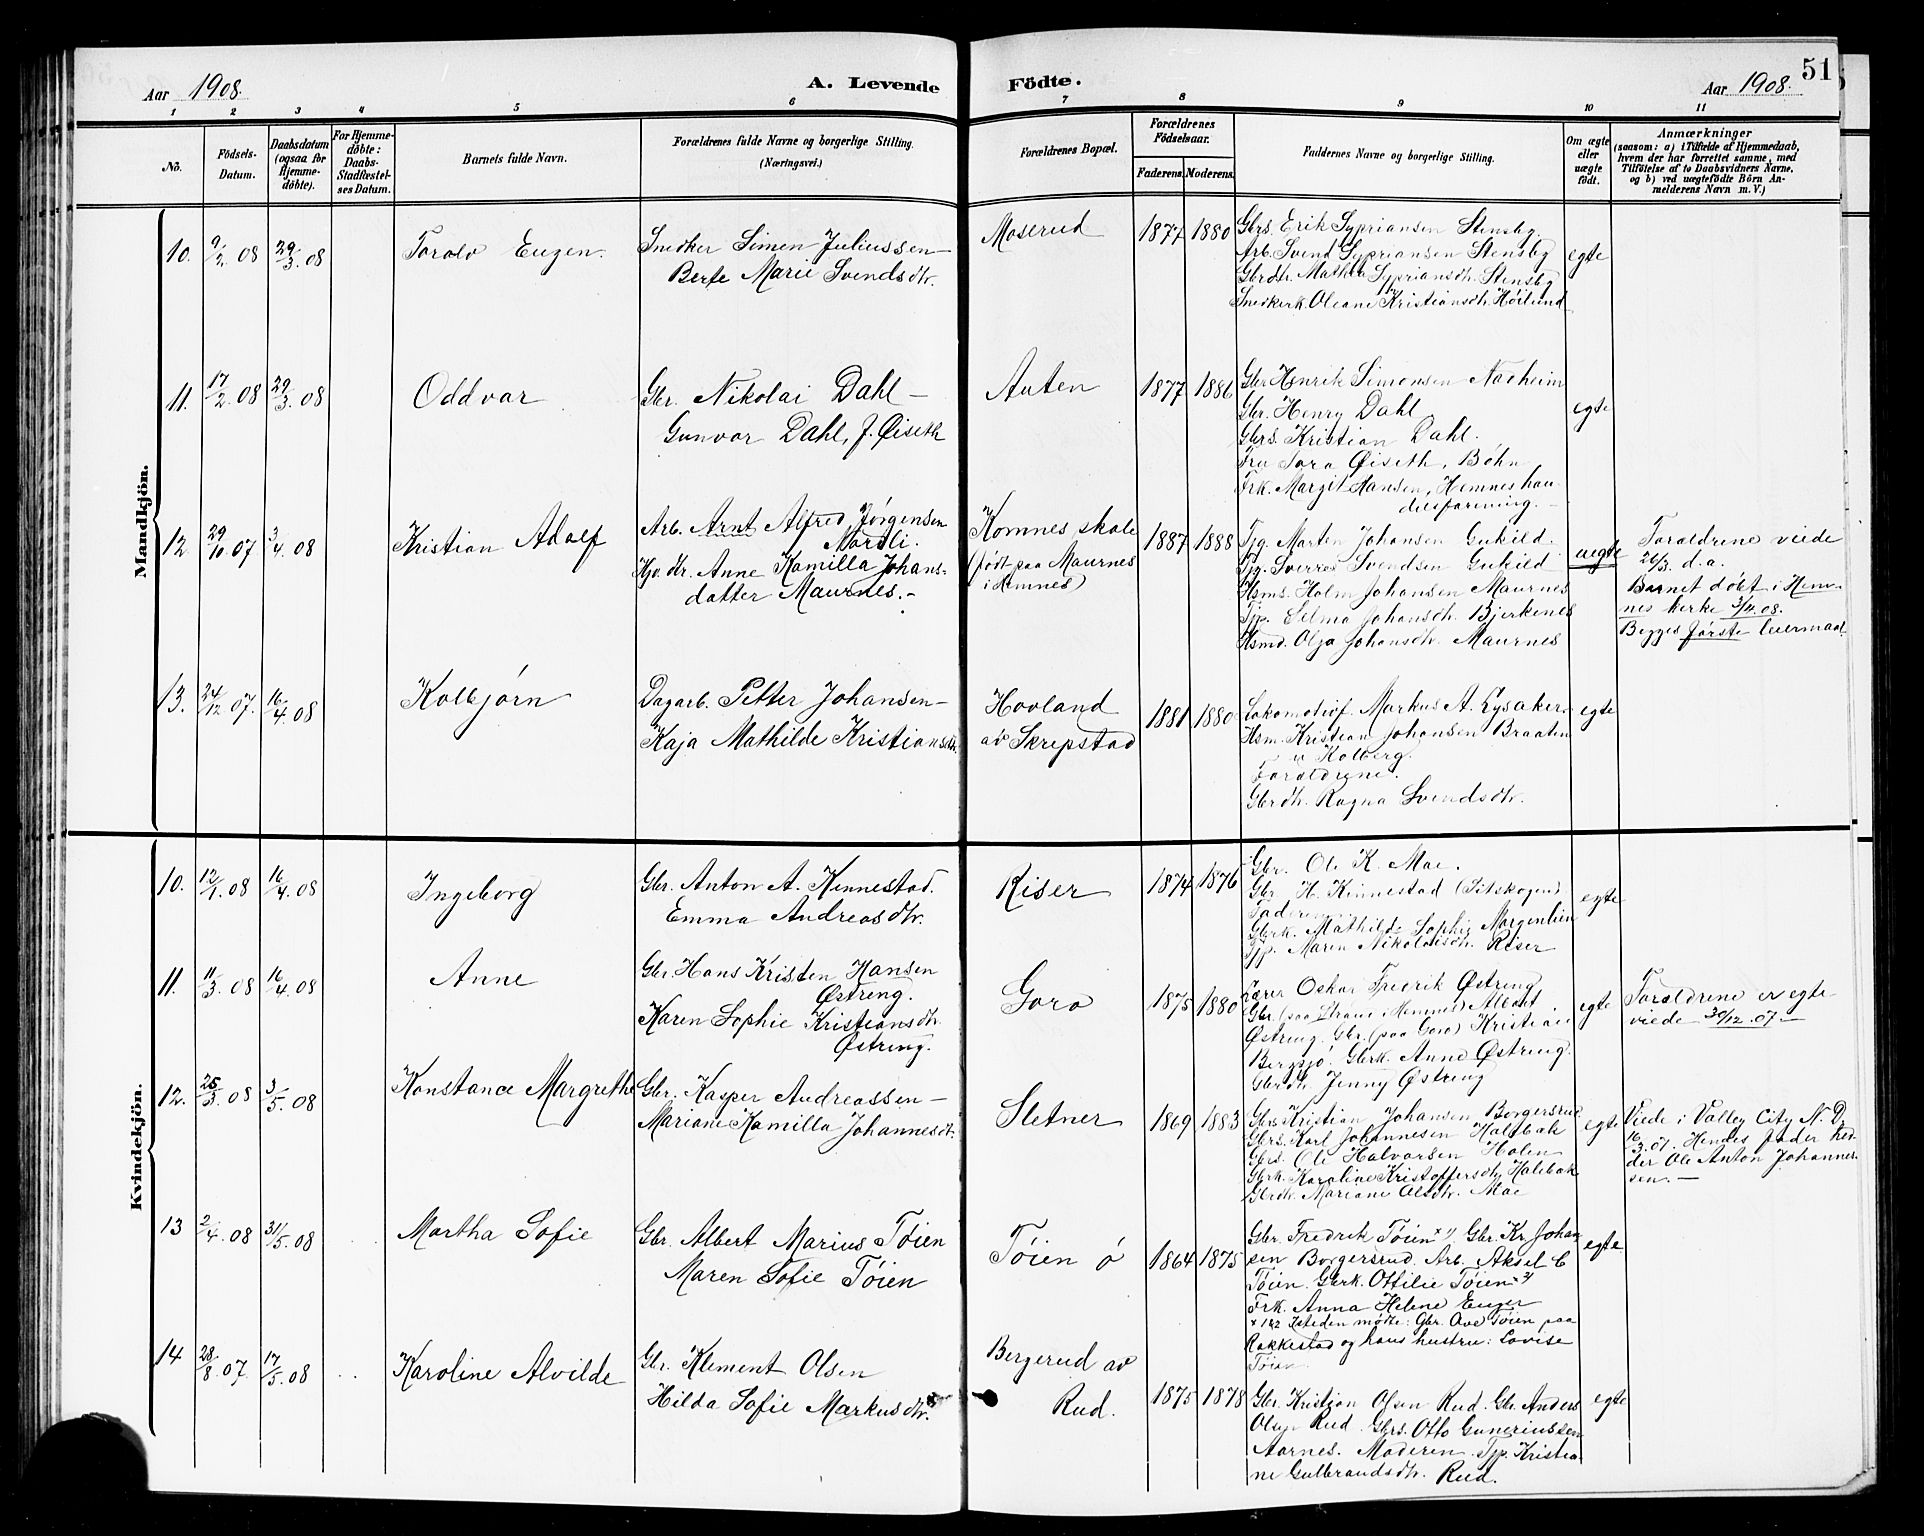 51
Aar 1908.
A. Levende Födte.
Aar 1908.
1 2 3 4 5 6 7 8 9 10 11
No.
Födsels-Datum.
Daabsdatum (ogsaa for Hjemme-döbte).
For Hjemme-döbte: Daabs-Stadfæstel-ses Datum.
Barnets fulde Navn.
Forældrenes fulde Navne og borgerlige Stilling.
(Næringsvei.)
Forældrenes Bopæl.
Forældrenes Födselsaar.
Faderens. Moderens.
Faddernes Navne og borgerlige Stilling.
Om ægte eller uægte födt.
Anmærkninger
(saasom: a) i Tilfælde af Hjemmedaab,
hvem der har forrettet samme, med
Tilföielse af to Daabsvidners Navne,
og b) ved uægtefödte Börn An-
melderens Navn m. V.)
Mandkjön.
10. 9/2 08 29/3 08
Torolv Eugen.
Snedker Simen Juliussen –
Berte Marie Svendsdtr.
Moserud
1877 1880
Gbrs. Erik Sypriansen Stensby.
Arb. Svend Sypriansen Stensby
Gbrdtr. Mathea Sypriansdtr. Stensby
Snedkerk. Oleane Kristiansdtr. Höilund
egte
11. 17/2 08 29/3 08
Oddvar
Gbr. Nikolai Dahl –
Gunvor Dahl, f. Øiseth
Auten
1877 1886
Gbr. Henrik Simensen Nadheim
Gbr. Henry Dahl
Gbrs. Kristian Dahl.
Fru Sara Øiseth, Böhn
Frk. Margit Hansen, Hemnes han-
delsforening. –
egte
12 29/10 07 3/4 08
Kristian Adolf
Arb. Arnt Alfred Jörgensen
Mordli.
Hjv. dtr. Anne Kamilla Johans-
datter Maurnes. –
Komnes skole
(födt paa Maurnes
i Hemnes)
1887 1888
Tjg. Marten Johansen Gukild.
Tjg. Sverres Svendsen Gukild
Hsms. Holm Johansen Maurnes
Tjp. Selma Johansdtr. Bjerkenes
Hsmd. Olga Johansdtr. Maurnes
uegte
Foraldrene viede
26/3. d. a.
Barnet döbt i Hem-
nes kerke 3/4. 08.
Begges förste leiermaal
13. 24/12 07. 16/4 08
Kolbjörn
Dagarb. Petter Johansen –
Kaja Mathilde Kristiansdtr.
Hovland
av Skrepstad
1881 1880
Lokomotivf. Markus A. Lysaker.
Hsm. Kristian Johansen Braaten
u Kolberg.
Foraldrene.
Gbrdtr. Ragna Svendsdtr.
egte
Kvindekjön.
10. 12/1 08 16/4 08
Ingeborg
Gbr. Anton A. Kinnestad.
Emma Andreasdtr.
Riser
1874 1876
Gbr. Ole K. Moe.
Gbr. H. Kinnestad (Sitskogen).
Faderen
Gbrk. Mathilde Sophie Morgenlien
Tjp. Maren Nikolaisdtr. Riser
egte
11. 11/3 08 16/4 08
Anne
Gbr. Hans Kristen Hansen
Østreng.
Karen Sophie Kristiansdtr.
Østreng.
Goro
1875 1880
Lærer Oskar Fredrik Østreng
Gbr. (paa Strøne i Hemnes) Albert
Østreng. Gbr. (paa Goro) Kristian
Bergsjö. Gbrk. Anne Østreng.
Gbrdtr. Jenny Østreng
egte
Foraldrene er egte-
viede 30/12. 07. –
12. 25/3 08 3/5 08
Konstance Margrethe
Gbr. Kasper Andreassen –
Mariane Kamilla Johannesdtr.
Sletner
1869 1883
Gbrs Kristian Johansen Borgersrud
Gbrs. Karl Johannesen Holsbak
Gbrs. Ole Halvorsen Holen
Gbrk. Karoline Kristoffersdtr. Holebak
Gbrdtr. Mariane Olsdtr. Moe
egte
Viede i Valley City N. D.
16/3. 07. Hendes fader hed-
der Ole Anton Johannes-
sen. –
13 2/4 08 31/5 08
Martha Sofie
Gbr. Albert Marius Töien
Maren Sofie Töien
Töien ö
1864 1875
Gbr. Fredrik Töien x1) Gbr. Kr. Johan
sen Borgersrud. Arb. Aksel C
Töien. Gbrk. Ottilie Töien x2)
Frk. Anna Helene Euger
x 1&2 Isteden mötte: Gbr. Ave Töien paa
Rakkestad og hans hustru: Lovise
Töien
egte
14 28/8 07. 17/5 08
Karoline Alvilde
Gbr. Klement Olsen
Hilda Sofie Markusdtr.
Bergerud av
Rud.
1875 1878
Gbr. Kristian Olsen Rud. Gbr. Anders
Olsen Rud. Gbrs. Otto Guneriussen
Aarnes. Moderen. Tjp. Kristia-
ne Gulbrandsdtr. Rud.
egte